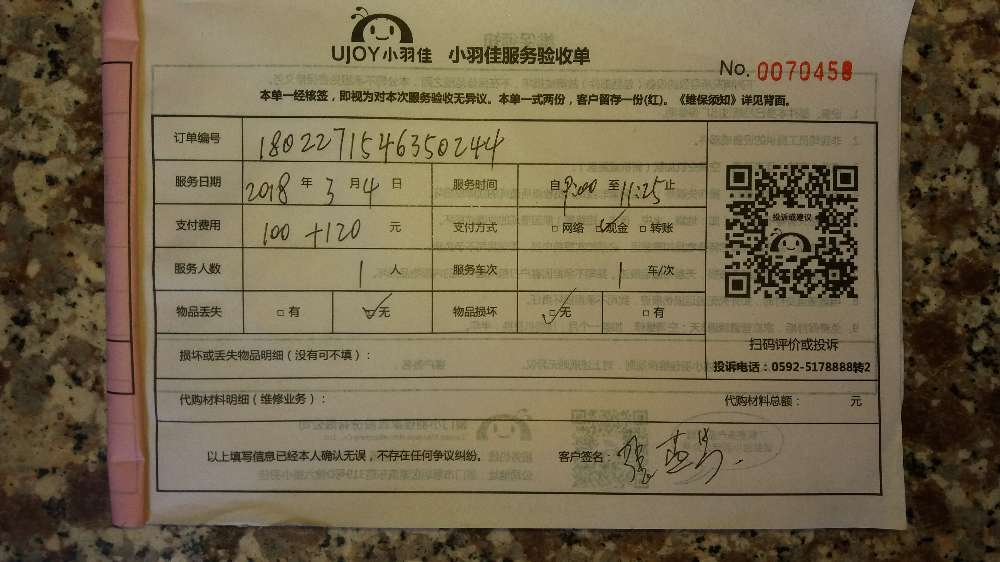 UJOY小羽佳 小羽佳服务验收单
No. 0070458
本单一经核签，即视为对本次服务验收无异议。本单一式两份，客户留存一份(红)。《维保须知》详见背面。
订单编号 1802271546350244
服务日期 2018 年 3 月 4 日 服务时间 自 9:00 至 11:25 止
支付费用 100 +120 元 支付方式 □ 网络 ☑ 现金 □ 转账
服务人数 1 人 服务车次 1 车/次
物品丢失 □ 有 ☑ 无 物品损坏 ☑ 无 □ 有
投诉或建议
扫码评价或投诉
投诉电话：0592-5178888转2
损坏或丢失物品明细（没有可不填）：
代购材料明细（维修业务）： 代购材料总额： 元
以上填写信息已经本人确认无误，不存在任何争议纠纷。 客户签名：